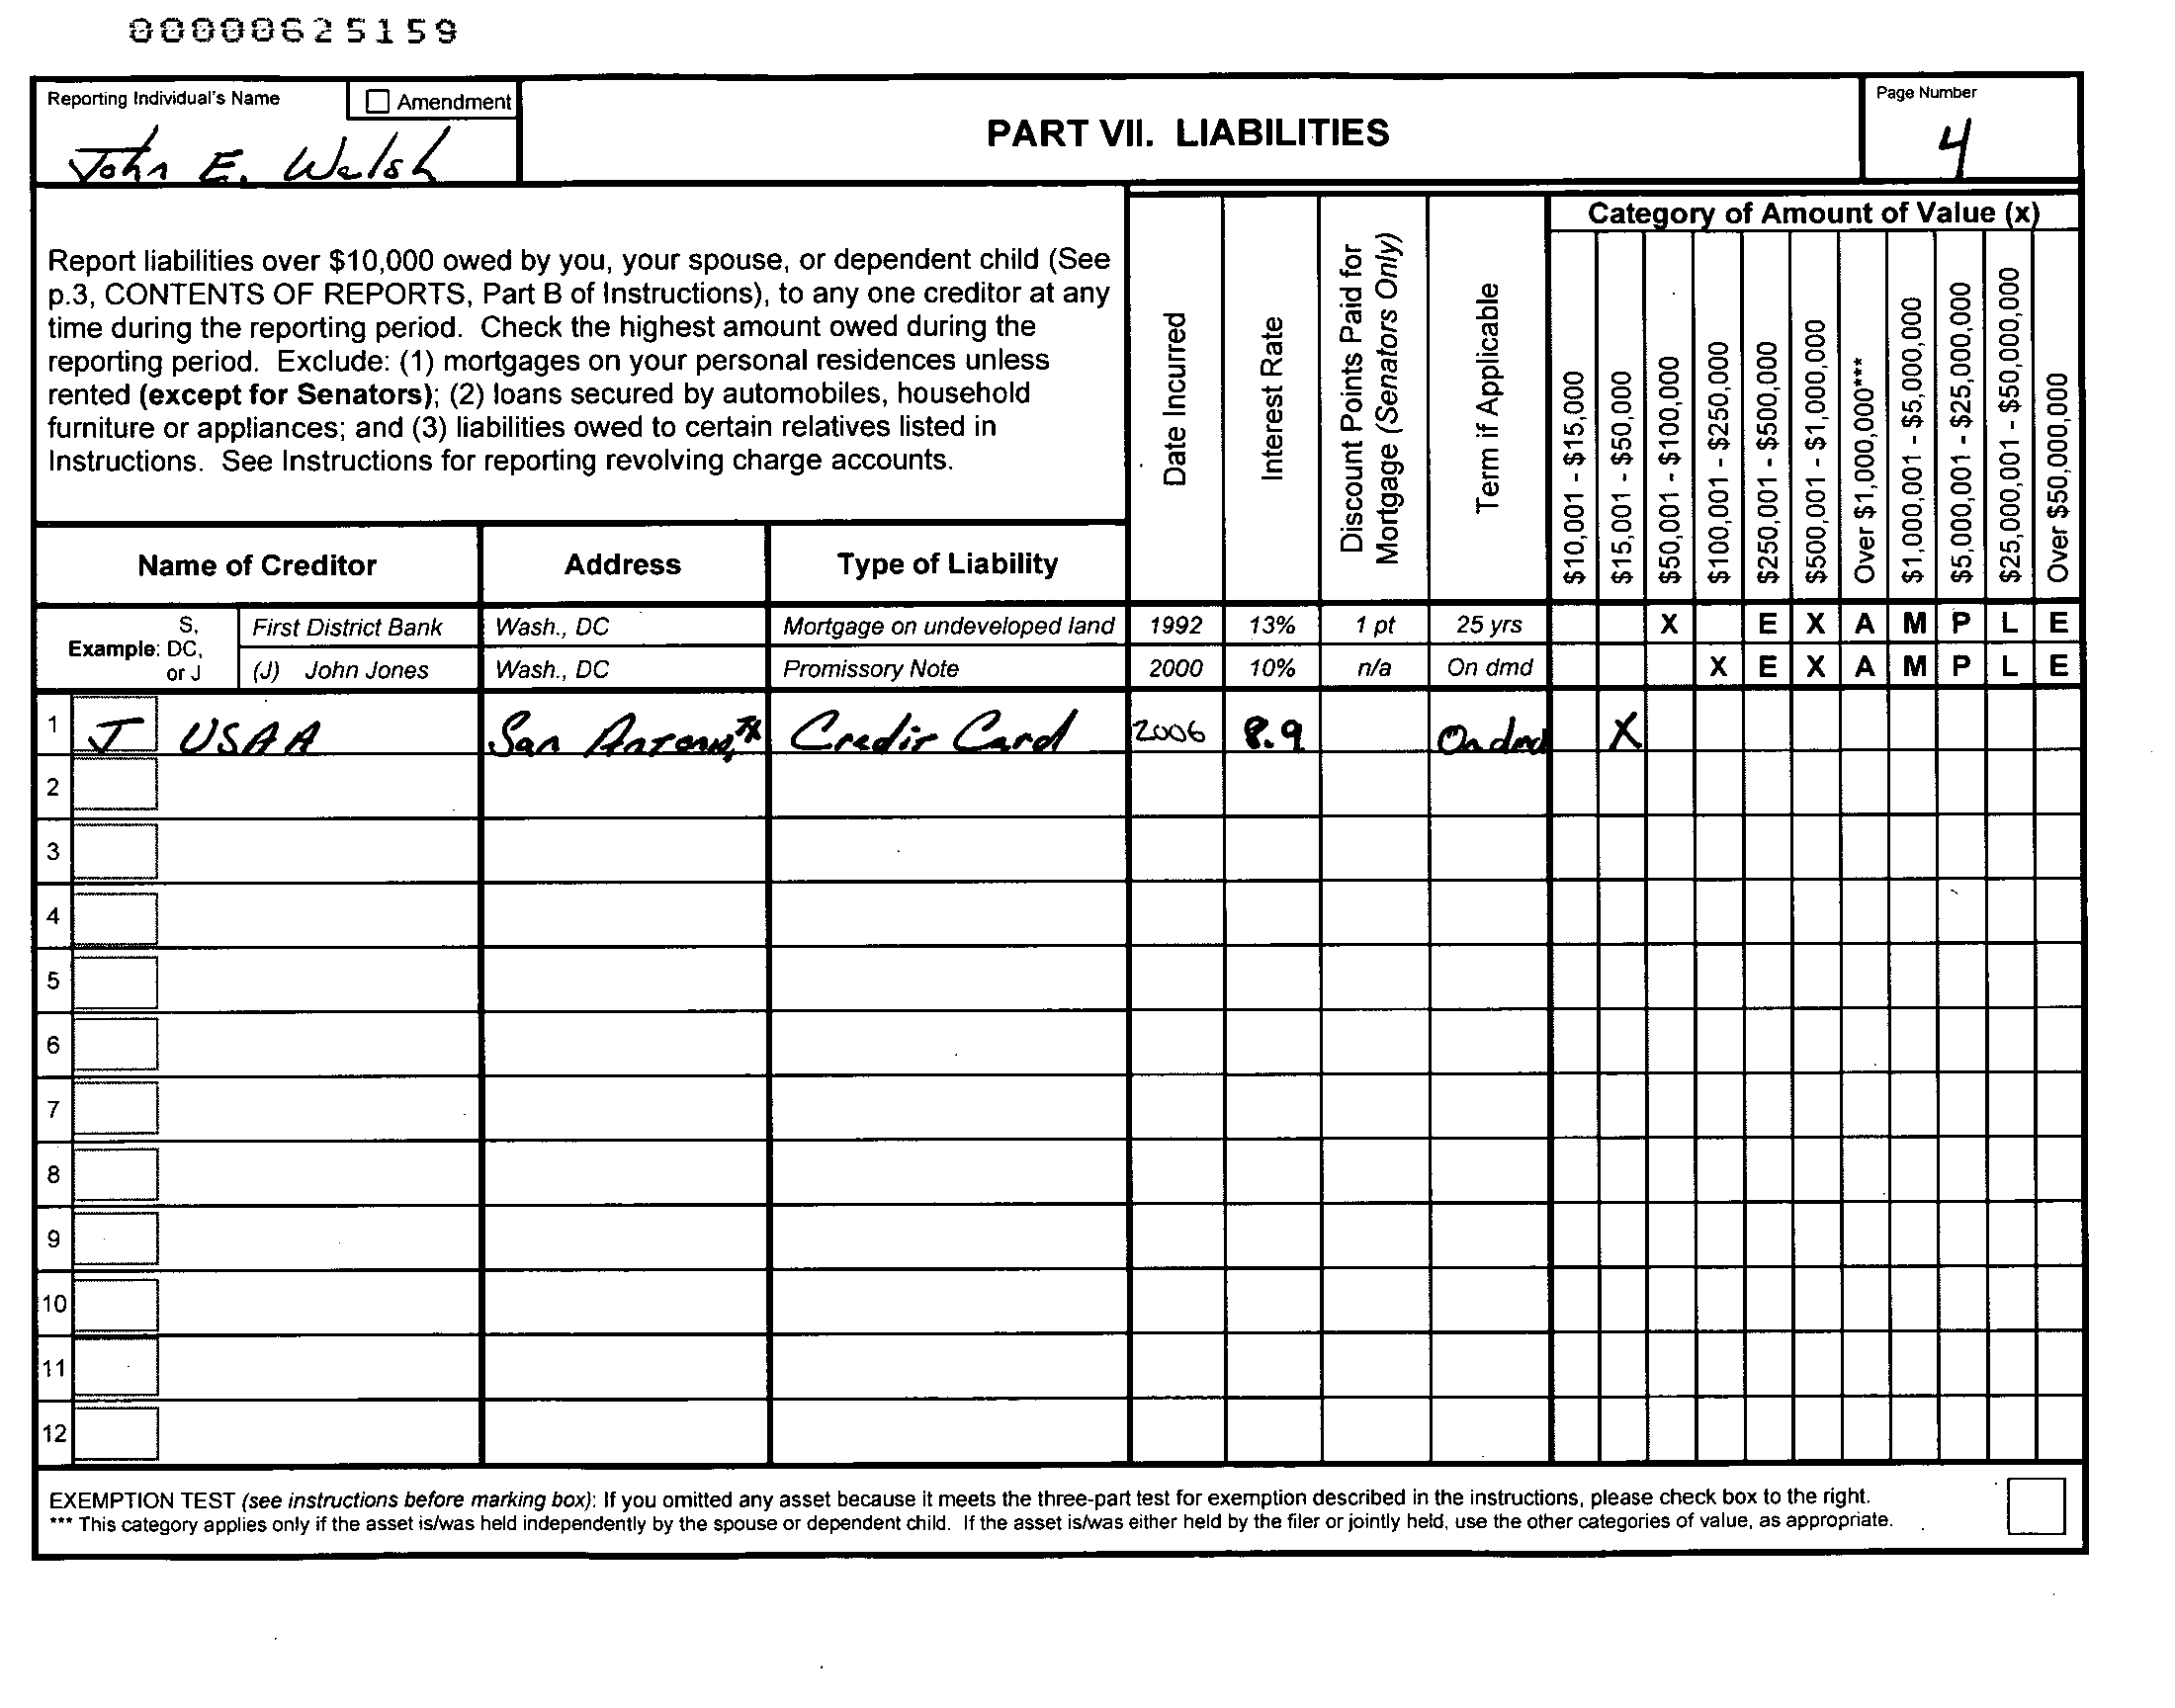 00000625159
Reporting Individual's Name
Amendment
John E. Walsh
PART VII. LIABILITIES
Page Number
4
Report liabilities over $10,000 owed by you, your spouse, or dependent child (See
p.3, CONTENTS OF REPORTS, Part B of Instructions), to any one creditor at any
time during the reporting period. Check the highest amount owed during the
reporting period. Exclude: (1) mortgages on your personal residences unless
rented (except for Senators); (2) loans secured by automobiles, household
furniture or appliances; and (3) liabilities owed to certain relatives listed in
Instructions. See Instructions for reporting revolving charge accounts.
Name of Creditor
Address
Type of Liability
Date Incurred
Interest Rate
Discount Points Paid for
Mortgage (Senators Only)
Term if Applicable
Category of Amount of Value (x)
$10,001 - $15,000
$15,001 - $50,000
$50,001 - $100,000
$100,001 - $250,000
$250,001 - $500,000
$500,001 - $1,000,000
Over $1,000,000***
$1,000,001 - $5,000,000
$5,000,001 - $25,000,000
$25,000,001 - $50,000,000
Over $50,000,000
Example: S, DC, or J
First District Bank Wash., DC Mortgage on undeveloped land 1992 13% 1 pt 25 yrs X E X A M P L E
(J) John Jones Wash., DC Promissory Note 2000 10% n/a On dmd X E X A M P L E
1 J USAA San Antonio, TX Credit Card 2006 8.9 On dmd X
2
3
4
5
6
7
8
9
10
11
12
EXEMPTION TEST (see instructions before marking box): If you omitted any asset because it meets the three-part test for exemption described in the instructions, please check box to the right.
*** This category applies only if the asset is/was held independently by the spouse or dependent child. If the asset is/was either held by the filer or jointly held, use the other categories of value, as appropriate.